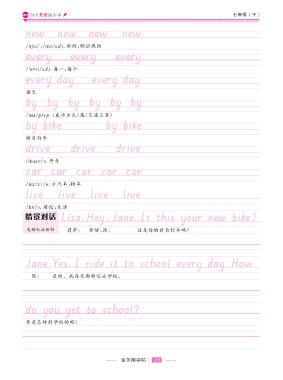 七年级(下)
new new new new
/njuː/,/nuː/adj. 新的;刚出现的
every every every
/'evri/adj. 每一;每个
every day every day
每天
by by by by by by
/baɪ/prep. (表示方式)乘(交通工具)
by bike by bike
骑自行车
drive drive drive
/draɪv/v. 开车
car car car car car
/kɑː(r)/n. 小汽车;轿车
live live live live
/lɪv/v. 居住;生活
情景对话 Lisa: Hey, Jane. Is this your new bike?
你好,简。 这是你的新自行车吗?
Jane: Yes. I ride it to school every day. How
简: 是的。我每天都骑它去学校。
do you get to school?
你是怎样到学校的呢?
19